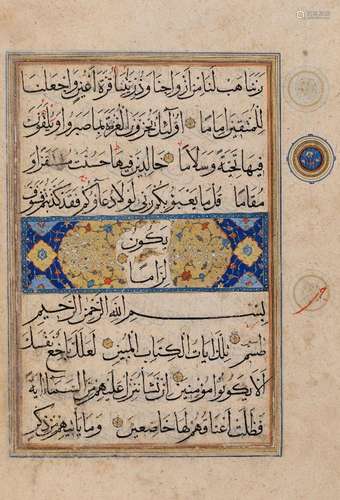 ربنا هب لنا من أزواجنا وذرياتنا قرة أعين واجعلنا
للمتقين إماما أولئك يجزون الغرفة بما صبروا ويلقون
فيها تحية وسلاما خالدين فيها حسنت مستقرا و
مقاما قل ما يعبؤ بكم ربي لولا دعاؤكم فقد كذبتم فسوف
يكون
لزاما
بسم الله الرحمن الرحيم
طسم تلك آيات الكتاب المبين لعلك باخع نفسك
ألا يكونوا مؤمنين إن نشأ ننزل عليهم من السماء آية
فظلت أعناقهم لها خاضعين وما يأتيهم من ذكر